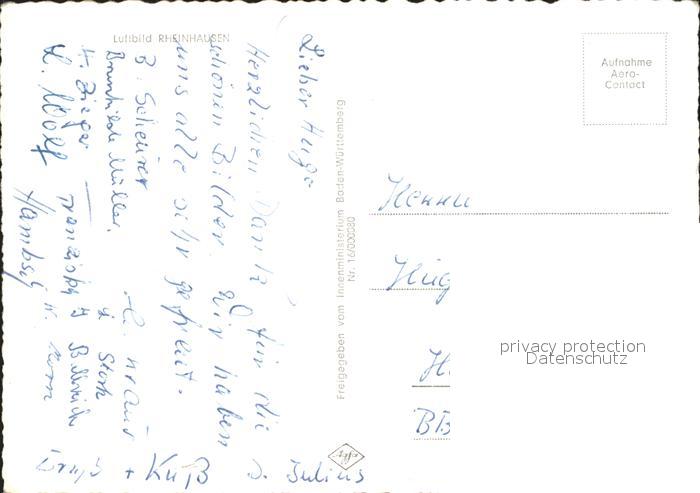 Luftbild RHEINHAUSEN
Lieber Hugo
Herzlichen Dank für die
schönen Bilder. Wir haben
uns alle sehr gefreut.
B. Scheurer
Brunhilde Müller
H. Zieger
L. Wolf
Franziska
Gruß + Kuß
Julius
Freigegeben vom Innenministerium Baden-Württemberg
Nr. 16/000080
Aufnahme
Aero-
Contact
Herrn
Hug
H
BB
privacy protection
Datenschutz